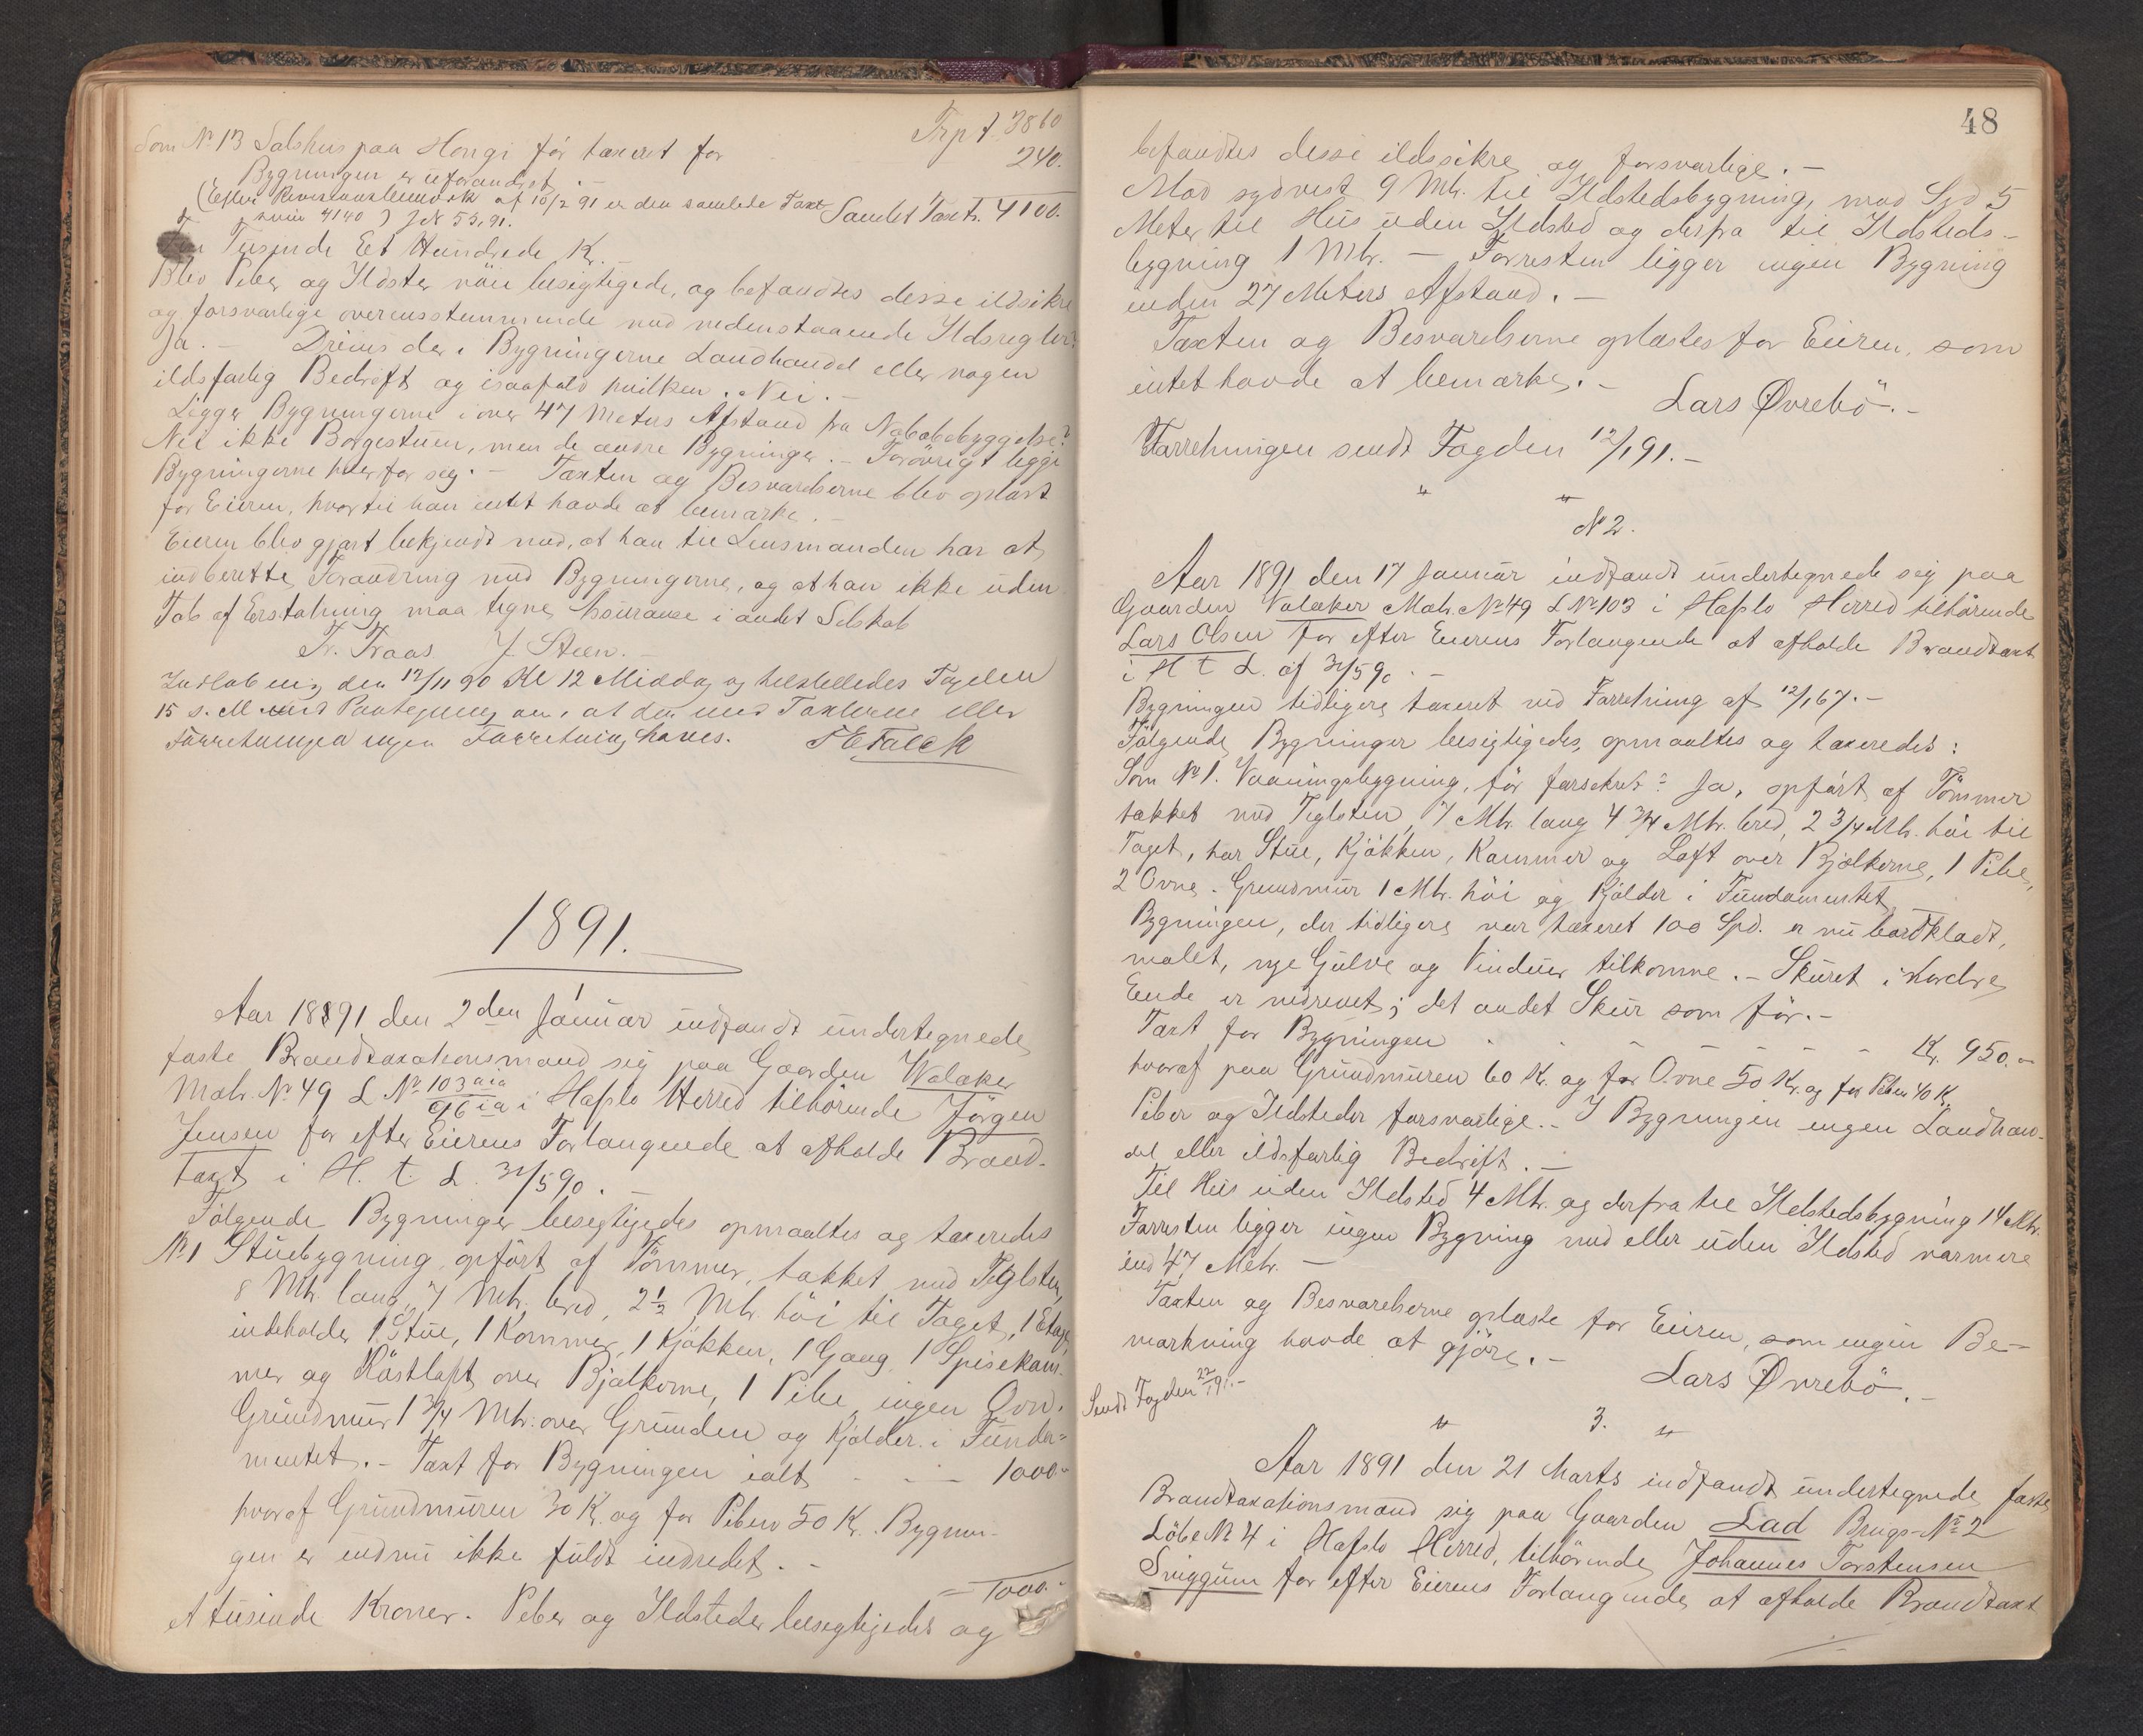 Trp f. 3860
Som No 13 Selshus paa Hougi før taxeret for 240.
Bygningen er uforandret.
(Efter Revisionsbemærk af 10/2 91 er den samlede Taxt Samlet Taxt Kr. 4100.
4140) JN 55, 91.
Tusinde Et Hundrede Kr.
Blev Piber og Ildster nöie besigtigede, og befandtes disse ildsikre
og forsvarlige overensstemmende med nedenstaaende Ildsregler?
Ja. – Drives der i Bygningerne Landhandel eller nogen
ildsfarlig Bedrift og isaafald hvilken. Nei. –
Ligger Bygningerne i over 47 Meters Afstand fra Nabobebyggelse?
Nei ikke Borgestuen, men de andre Bygninger. – Forövrigt ligge
Bygningerne hver for seg. – Taxten og Besvarelserne blev oplæst
for Eieren, hvortil han intet havde at bemærke. –
Eieren blev gjort bekjendt med, at han til Lensmanden har at
indberette Forandring med Bygningerne, og at han ikke uden
Tab af Erstatning maa tegne Assurance i andet Selskab
Fr. Traas J. Steen. –
den 12/11 90 Kl 12 Middag og tilstilledes Fogden
15 s. M med Paategning om, at der med Taxterne eller
Forretningen ingen Forretning haves. Falck
1891.
Aar 1891 den 2den Januar indfandt undertegnede
faste Brandtaxationsmand sig paa Gaarden Walaker
Matr. No 49 L No 103 aia
96 ia i Hafslo Herred tilhörende Jörgen
Jensen for efter Eierens Forlangende at afholde Brand-
taxt i H. t. L. 31/5 90. –
Fölgende Bygninger besigtigedes opmaaltes og taxeredes
No 1 Stuebygning opfört af Tömmer, takket med Teglsten,
8 Mtr. lang, 7 Mtr. bred, 2½ Mtr. höi til Taget, 1 Etage,
indeholder 1 Stue, 1 Kammer, 1 Kjökken, 1 Gang, 1 Spisekam-
mer og Röstloft over Bjælkerne, 1 Pibe, ingen Ovn.
Grundmur 1 3/4 Mtr. over Grunden og Kjelder i Funda-
mentet. – Taxt for Bygningen ialt – – – 1000.–
hvoraf Grundmuren 30 Kr. og for Piben 50 Kr. Bygnin-
gen er endnu ikke fuldt indredet. –
– 1000.–
Et tusinde Kroner. Piber og Ildsteder besigtigedes og
48
befandtes disse ildssikre og forsvarlige. –
Mod sydvest 9 Mtr. til Ildstedsbygning, mod Syd 5
Meter til Hus uden Ildsted og derfra til Ildsteds-
bygning 1 Mtr. – Forresten ligger ingen Bygning
inden 27 Meters Afstand. –
Taxten og Besvarelserne oplæstes for Eieren, som
intet havde at bemærke. –
Lars Øvrebö. –
Forretningen sendt Fogden 12/1 91. –
" "
No 2.
Aar 1891 den 17 Januar indfandt undertegnede sig paa
Gaarden Valaker Matr. No 49 L No 103 i Hafslo Herred tilhörende
Lars Olsen for efter Eierens Forlangende at afholde Brandtaxt
i H t L. af 31/5 90. –
Bygningen tidligere taxeret ved Forretning af 12/1 67. –
Fölgende Bygninger besigtigedes, opmaaltes og taxeredes:
Som No 1. Vaaningsbygning, för forsikret? Ja, opfört af Tömmer
takket med Teglsten, 7 Mtr. lang 4 3/4 Mtr. bred, 2 3/4 Mtr. höi til
Taget, har Stue, Kjökken, Kammer og Loft over Bjælkerne, 1 Pibe,
2 Ovne. Grundmur 1 Mtr. höi og Kjelder i Fundamentet.
Bygningen, der tidligere var taxeret 100 Spd. er nu bordklædt,
malet, nye Gulve og Vinduer tilkomne. – Skuret i Nordre
Ende er nedrevet; det andet Skur som för. –
Taxt for Bygningen – – – – – – Kr. 950.–
hvoraf paa Grundmuren 60 Kr. og for Ovne 50 Kr. og for Piben 40 Kr.
Piber og Ildsteder forsvarlige. – I Bygningen ingen Landhan-
del eller ildsfarlig Bedrift. –
Til Hus uden Ildsted 4 Mtr. og derfra til Ildstedsbygning 14 Mtr.
Forresten ligger ingen Bygning med eller uden Ildsted nærmere
end 47 Metr. –
Taxten og Besvarelserne oplæste for Eieren, som ingen Be-
mærkning havde at gjöre. –
Lars Øvrebö. –
Sendt Fogden 22/1 91. –
" 3. "
Aar 1891 den 21 Marts indfandt undertegnede faste
Brandtaxationsmand sig paa Gaarden Lad Brugs-No 2
Löbe No 4 i Hafslo Herred, tilhörende Johannes Torstensen
Sniggum for efter Eierens Forlangende at afholde Brandtaxt